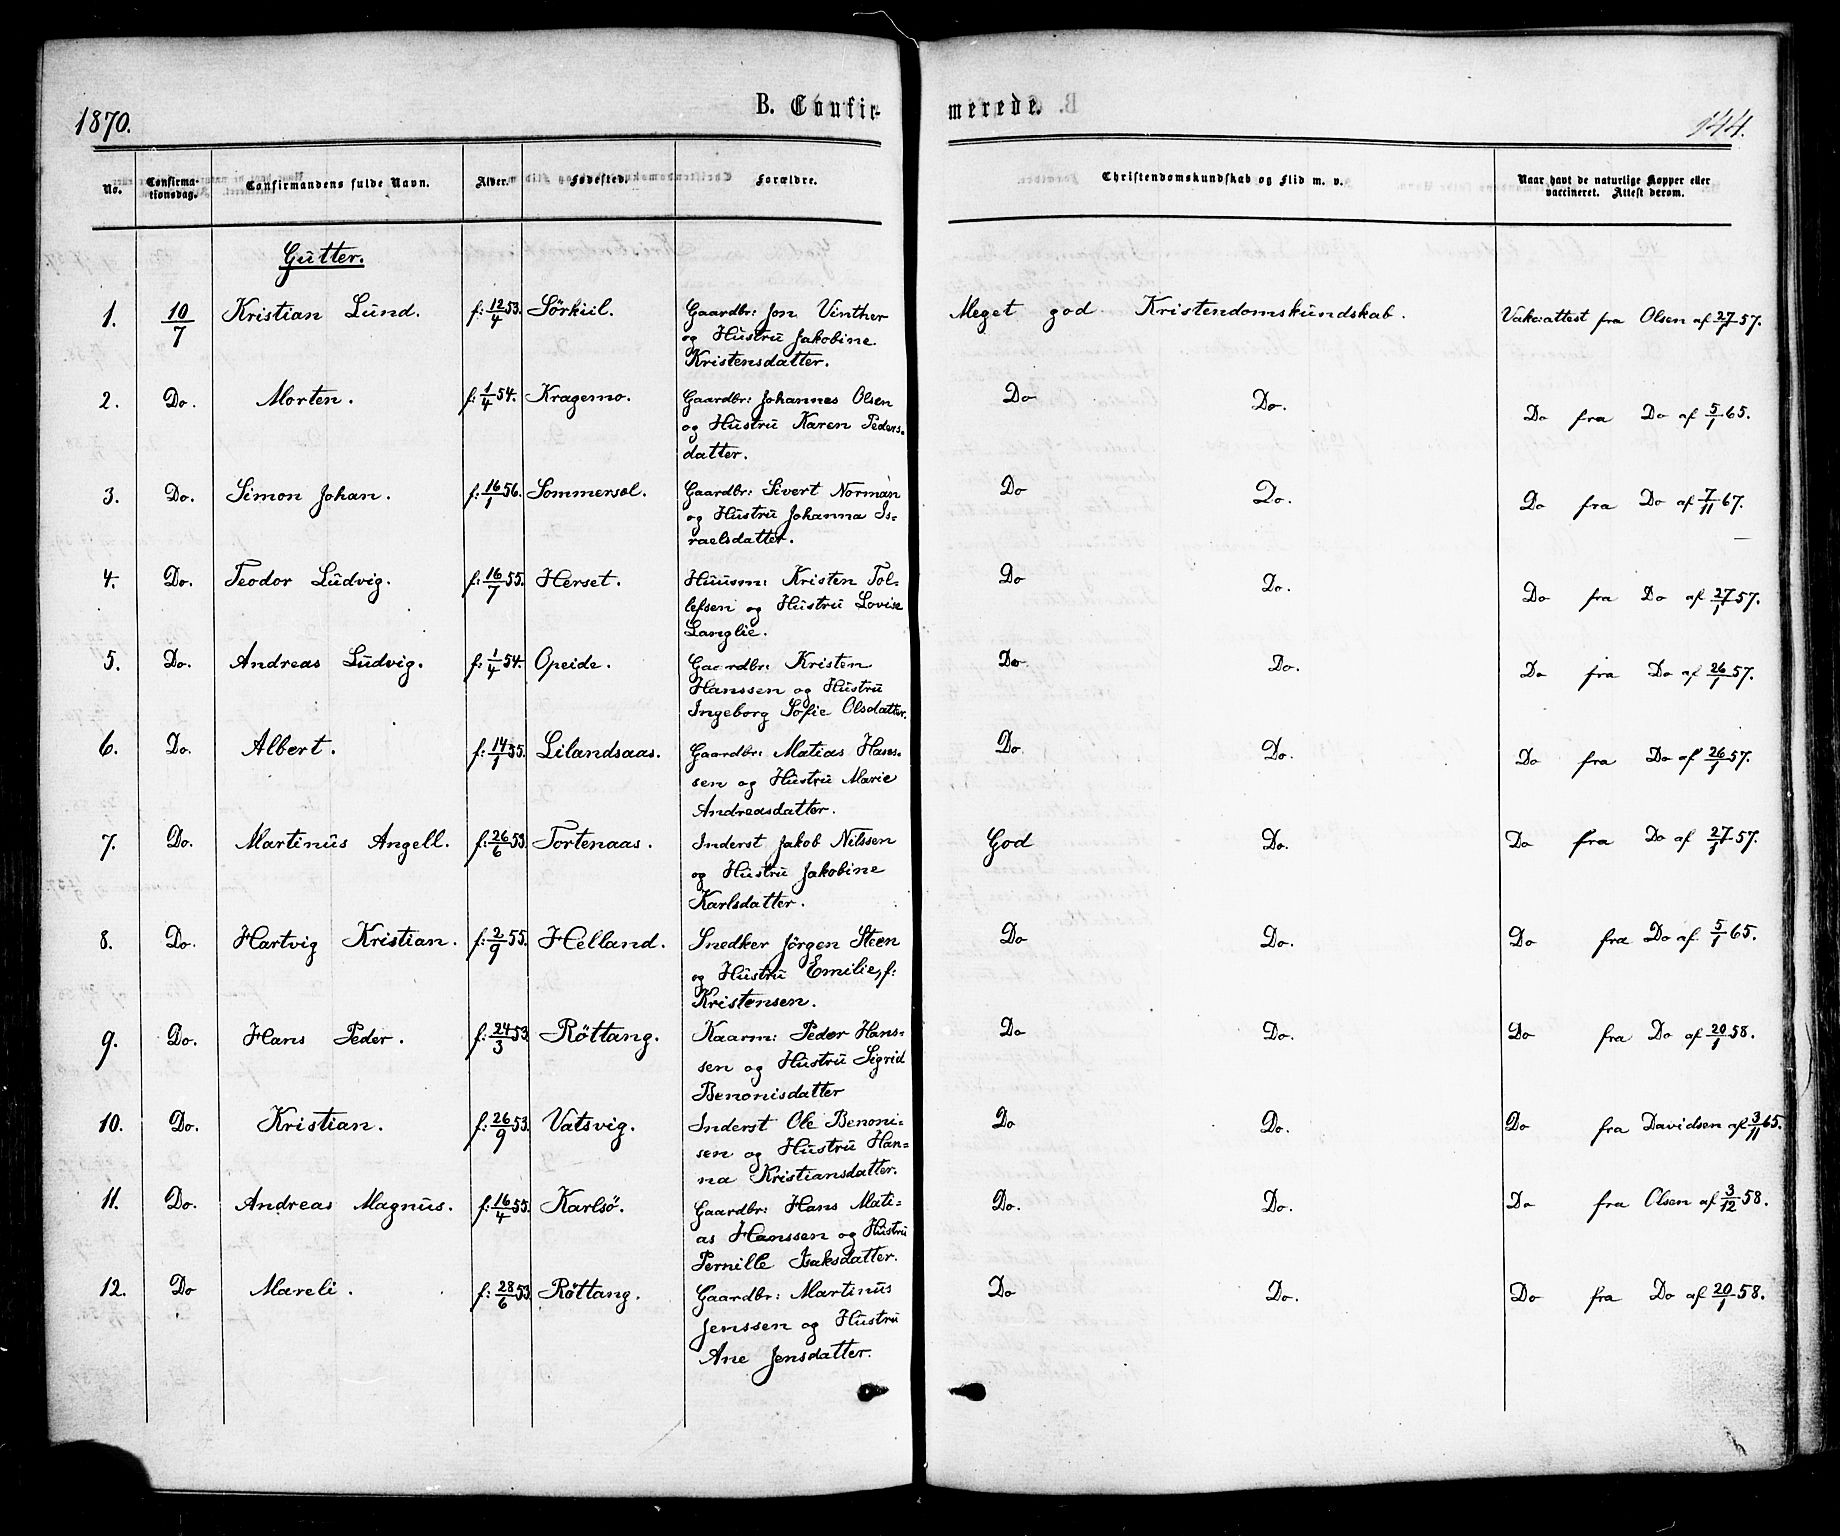 1870.
B. Confir-
merede.
144.
No.
Confirma-
tionsdag.
Confirmandens fulde Navn.
Alder.
Fødested.
Forældre.
Christendomskundskab og Flid m. v.
Naar havt de naturlige Kopper eller
vaccineret. Attest derom.
Gutter.
1. 10/7 Kristian Lund. f: 12/4 53. Sörkil. Gaardbr: Jon Vinther Meget god Kristendomskundskab. Vakc:attest fra Olsen af 27/1 57.
og Hustru Jakobine
Kristensdatter.
2. Do. Morten. f: 1/4 54. Kragemo. Gaardbr: Johannes Olsen Do Do. Do fra Do af 5/1 65.
og Hustru Karen Peders-
datter.
3. Do. Simon Johan. f: 16/1 56. Sommersel. Gaardbr: Sivert Norman Do Do. Do fra Do af 7/11 67.
og Hustru Johanna Is-
raelsdatter.
4. Do. Teodor Ludvig. f: 16/7 55. Herset. Huusm: Kristen Tol- Do Do. Do fra Do af 27/1 57.
lefsen og Hustru Lovise
Langlie.
5. Do. Andreas Ludvig. f: 1/4 54. Opeide. Gaardbr: Kristen Do Do. Do fra Do af 26/1 57.
Hanssen og Hustru
Ingeborg Sofie Olsdatter.
6. Do. Albert. f: 14/1 55. Lilandsaas. Gaardbr: Matias Hans- Do. Do. Do fra Do af 26/1 57.
sen og Hustru Marie
Andreasdatter.
7. Do. Martinus Angell. f: 26/6 53. Tortenaas. Inderst Jakob Nilssen God Do. Do fra Do af 27/1 57.
og Hustru Jakobine
Karlsdatter.
8. Do. Hartvig Kristian. f: 2/9 55. Helland. Snedker Jörgen Steen Do Do. Do fra Do af 5/1 65.
og Hustru Emilie, f:
Kristensen.
9. Do. Hans Peder. f: 24/3 53 Röttang. Kaarm: Peder Hans- Do Do. Do fra Do af 20/1 58.
sen og Hustru Sigrid
Benonisdatter
10. Do. Kristian. f: 26/9 53. Vatsvig. Inderst Ole Benoni- Do Do. Do fra Davidsen af 3/11 65.
sen og Hustru Han-
na Kristiansdatter.
11. Do. Andreas Magnus. f: 16/4 55. Karlsö. Gaardbr: Hans Mati- Do. Do. Do fra Olsen af 3/12 58.
as Hanssen og Hustru
Pernille Isaksdatter.
12. Do Mareli. f: 28/6 53. Röttang. Gaardbr: Martinus Do Do. Do fra Do af 20/1 58.
Jenssen og Hustru
Ane Jensdatter.